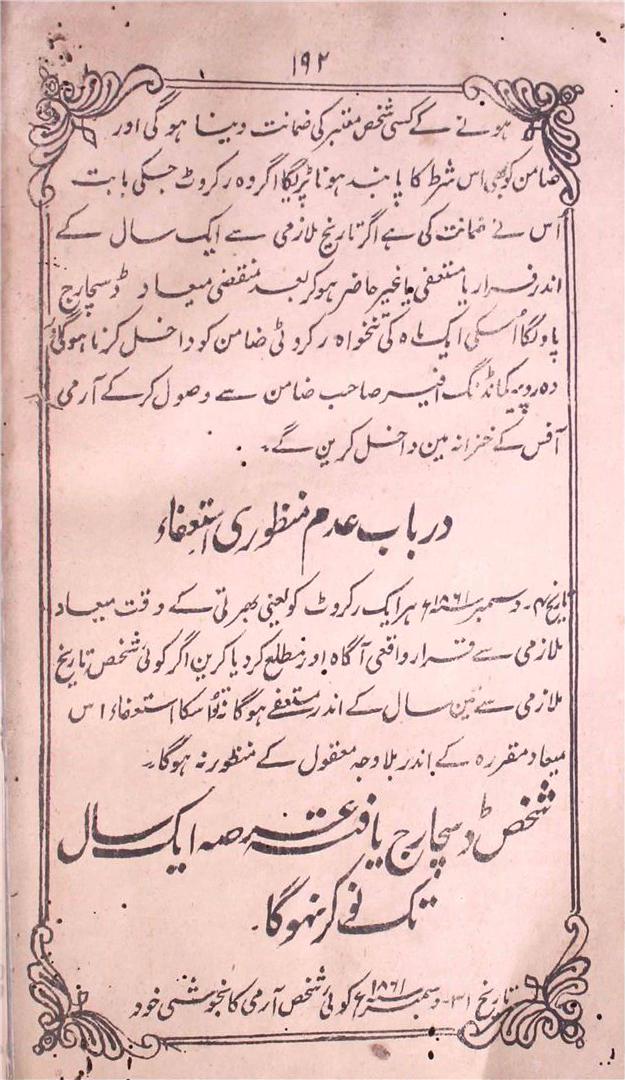 ۱۹۲
ہونے کے کسی شخص معتبر کی ضمانت دینا ہوگی اور
ضامن کو بھی اس شرط کا پابند ہونا پڑیگا اگر وہ رکروٹ جسکی بابت
اُس نے ضمانت کی ہے اگر تاریخ ملازمی سے ایک سال کے
اندر فرار یا مستعفی یا غیر حاضر ہوکر بعد منقضی میعاد ڈسچارج
پاویگا اُسکی ایک ماہ کی تنخواہ رکروٹی ضامن کو داخل کرنا ہوگی
دہ روپیہ کمانڈنگ افیسر صاحب ضامن سے وصول کرکے آرمی
آفس کے خزانہ مین داخل کرین گے۔
در باب عدم منظوری استعفاء
تاریخ ۴۔ دسمبر ۱۸۶۱ء ہر ایک رکروٹ کو یعنی بھرتی کے وقت میعاد
ملازمی سے قرار واقعی آگاہ اور مطلع کردیا کرین اگر کوئی شخص تاریخ
ملازمی سے تین سال کے اندر مستعفے ہوگا تو اُسکا استعفاء اس
میعاد مقررہ کے اندر بلا وجہ معقول کے منظور نہ ہوگا۔
شخص ڈسچارج یافتہ عرصہ ایک سال
تک نوکر نہوگا۔
تاریخ ۳۱۔ دسمبر ۱۸۶۱ء کوئی شخص آرمی کا بخوشی خود